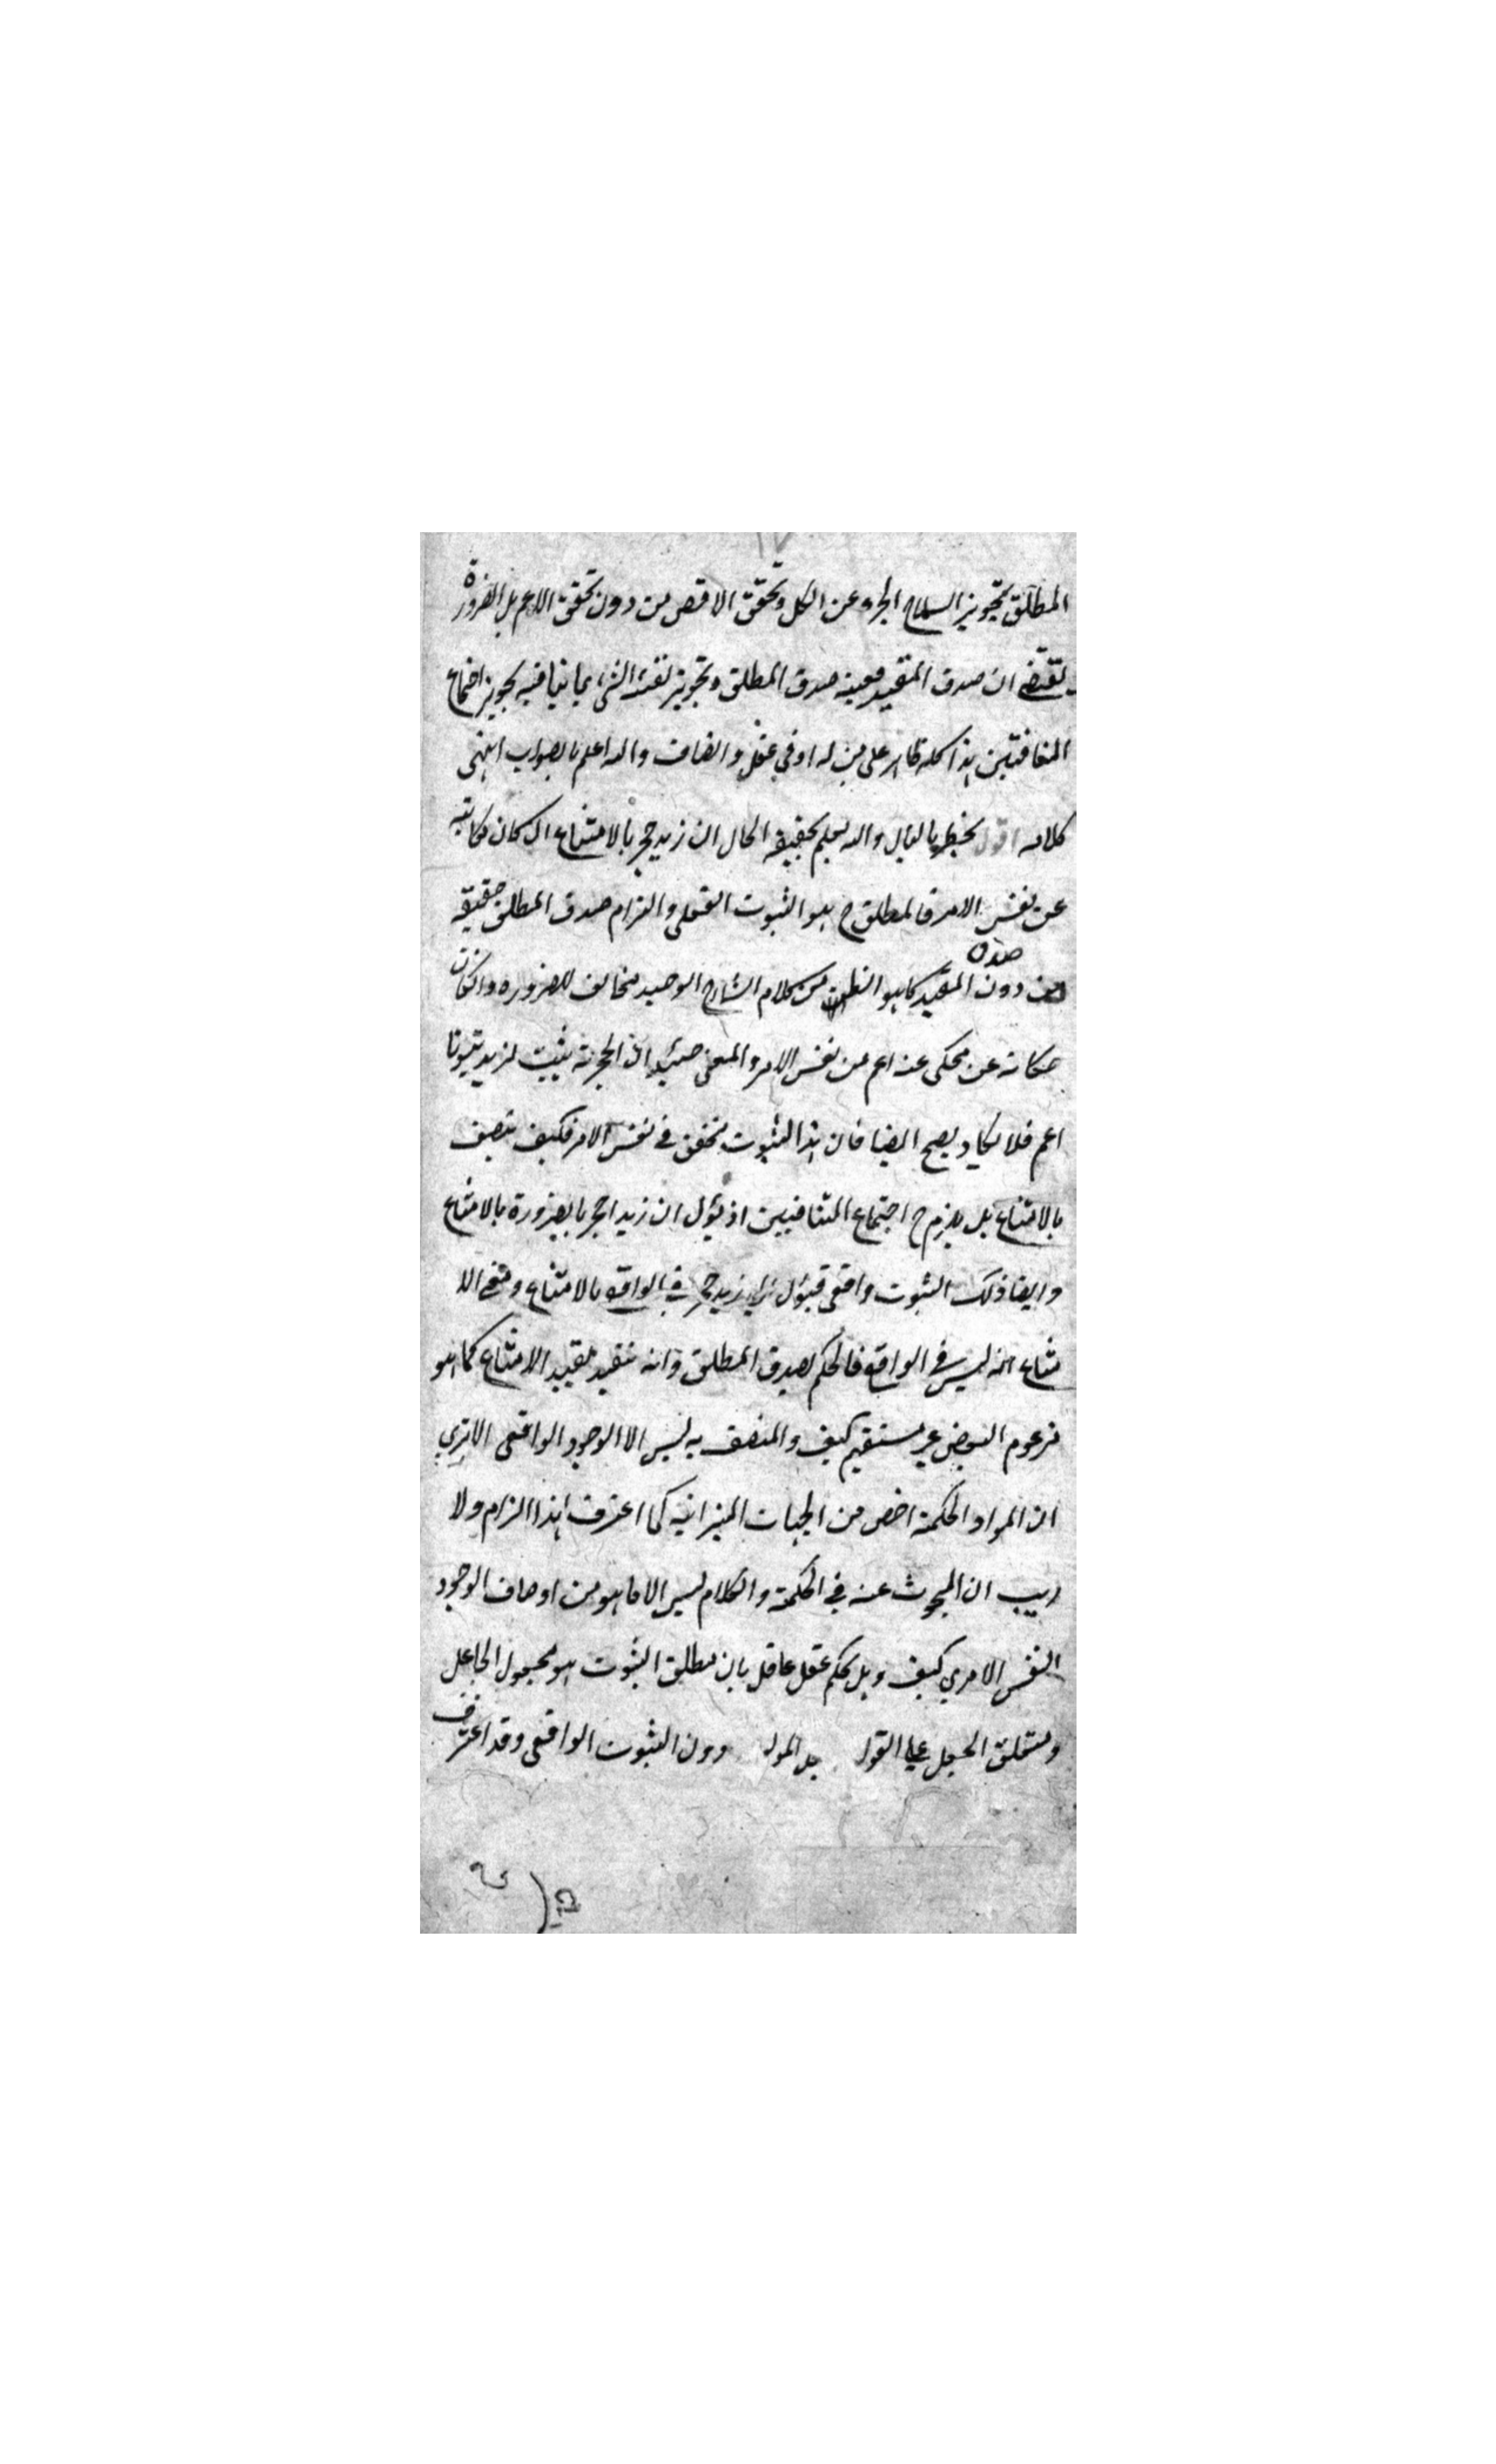 المطلق تجويز انسلاخ الجزء عن الكل وتحقق الاخص من دون تحقق الاعم بل الضرورة
تقتضى ان صدق المقيد معينه صدق المطلق وتجويز تقيد الشى بما ينافيه تجويز اجتماع
المتنافيين هذا كله ظاهر على من له ادنى عقل وانصاف والله اعلم بالصواب انتهى
كلامه اقول يخطر بالبال والله يعلم بحقيقة الحال ان زيد حجر بالامتناع ان كان حكاية
عن نفس الامر فالمطلق ح هو الثبوت الفعلى والتزام صدق المطلق حقيقة
من دون صدق المقيد كما هو الظاهر من كلام الشارح الوحيد مخالف للضرورة وان كان
حكاية عن محكى عنه اعم من نفس الامر والمعنى حينئذ ان الحجرية يثبت لزيد ثبوتا
اعم فلا يكاد يصح ايضا فان هذا الثبوت متحقق فى نفس الامر فكيف يتصف
بالامتناع بل يلزم ح اجتماع المتنافيين اذ يؤل ان زيدا حجر بالضرورة بالامتناع
وايضا ذلك الثبوت واقعى فيؤل الى زيد حجر فى الواقع بالامتناع ومعنى الا
متناع انه ليس فى الواقع فالحكم بصدق المطلق وانه يتقيد بقيد الامتناع كما هو
مزعوم البعض غير مستقيم كيف والمتصف به ليس الا الوجود الواقعى الا ترى
ان المواد الحكمية اخص من الجهات الميزانية كما اعترف هذا الزام ولا
ريب ان المبحوث عنه فى الحكمة والكلام ليس الا ما هو من اوصاف الوجود
النفس الامرى كيف وهل يحكم عقل عاقل بان مطلق الثبوت هو مجعول الجاعل
ومتعلق الجعل على القول دون الثبوت الواقعى وقد اعترف